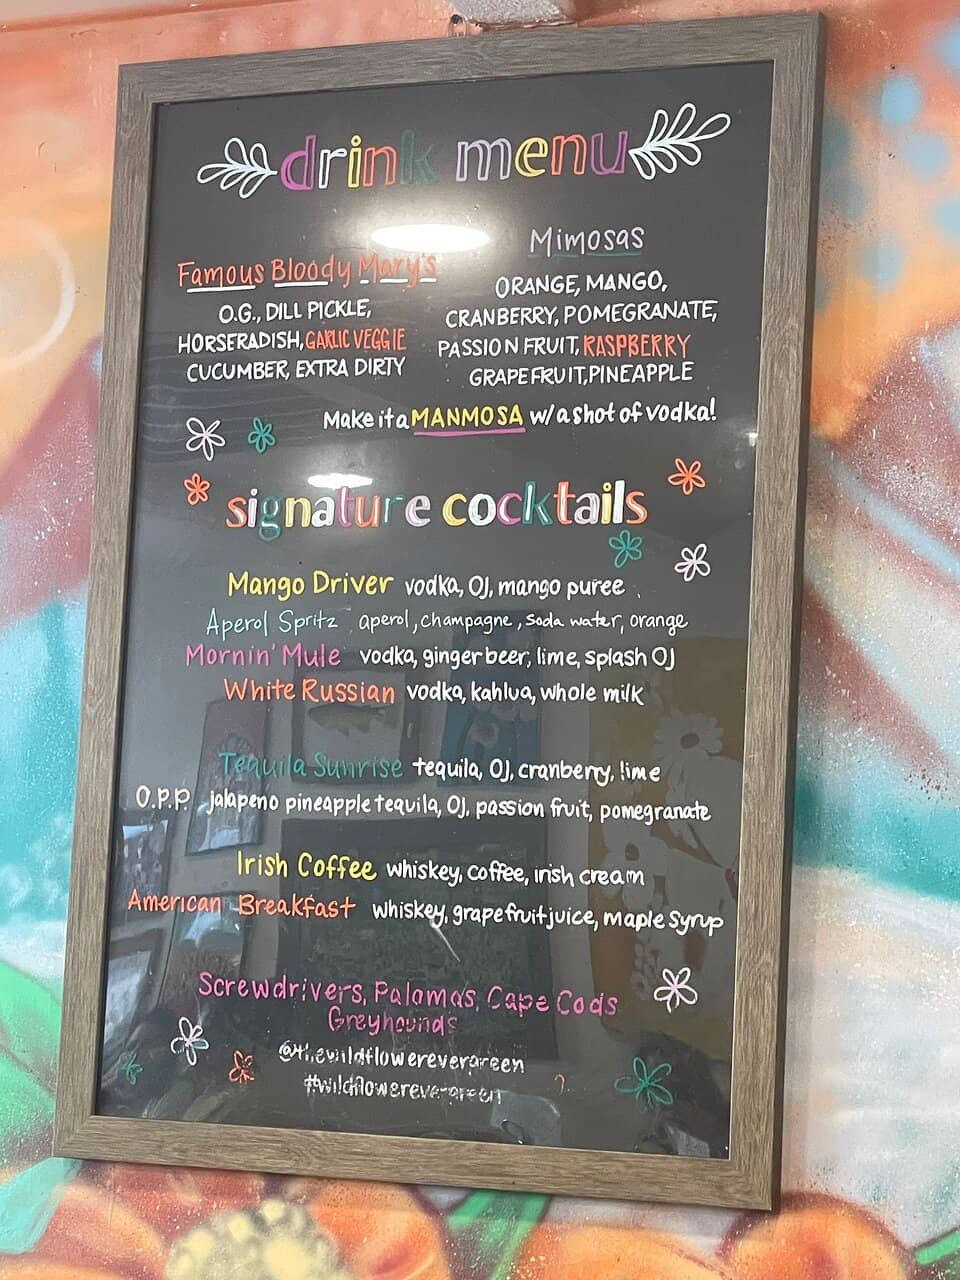 drink menu
Famous Bloody Mary's
O.G., DILL PICKLE,
HORSERADISH, GARLIC VEGGIE
CUCUMBER, EXTRA DIRTY
Mimosas
ORANGE, MANGO,
CRANBERRY, POMEGRANATE,
PASSION FRUIT, RASPBERRY
GRAPEFRUIT, PINEAPPLE
Make it a MANMOSA w/ a shot of vodka!
signature cocktails
Mango Driver vodka, OJ, mango puree
Aperol Spritz aperol, champagne, soda water, orange
Mornin' Mule vodka, ginger beer, lime, splash OJ
White Russian vodka, kahlua, whole milk
Tequila Sunrise tequila, OJ, cranberry, lime
O.P.P. jalapeno pineapple tequila, OJ, passion fruit, pomegranate
Irish Coffee whiskey, coffee, irish cream
American Breakfast whiskey, grapefruit juice, maple syrup
Screwdrivers, Palomas, Cape Cods
Greyhounds
@thewildflowerevergreen
#wildflowerevergreen